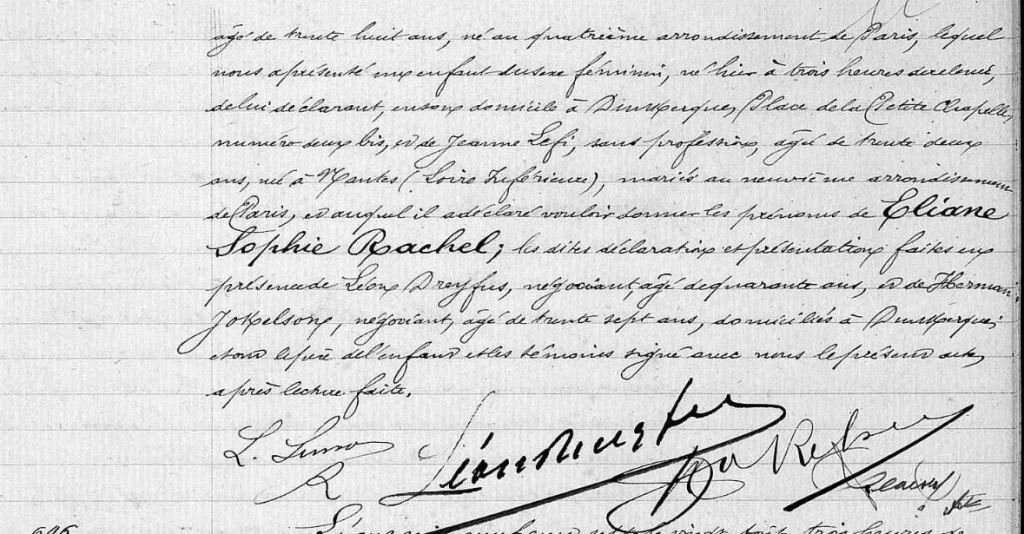 âgé de trente huit ans, né au quatrième arrondissement de Paris, lequel
nous a présenté un enfant du sexe féminin, né hier à trois heures de relevée,
de lui déclarant, en son domicile à Dunkerque, Place de la Petite Chapelle,
numéro deux bis, et de Jeanne Lefi, sans profession, âgée de trente deux
ans, née à Nantes (Loire Inférieure), mariés au neuvième arrondissement
de Paris, et auquel il a déclaré vouloir donner les prénoms de Eliane
Sophie Rachel; les dites déclaration et présentation faites en
présence de Léon Dreyfus, négociant, âgé de quarante ans, et de Herman
Jokelson, négociant, âgé de trente sept ans, domiciliés à Dunkerque;
et ont le père de l'enfant et les témoins signé avec nous le présent acte,
après lecture faite.
L.
Léon Dreyfus